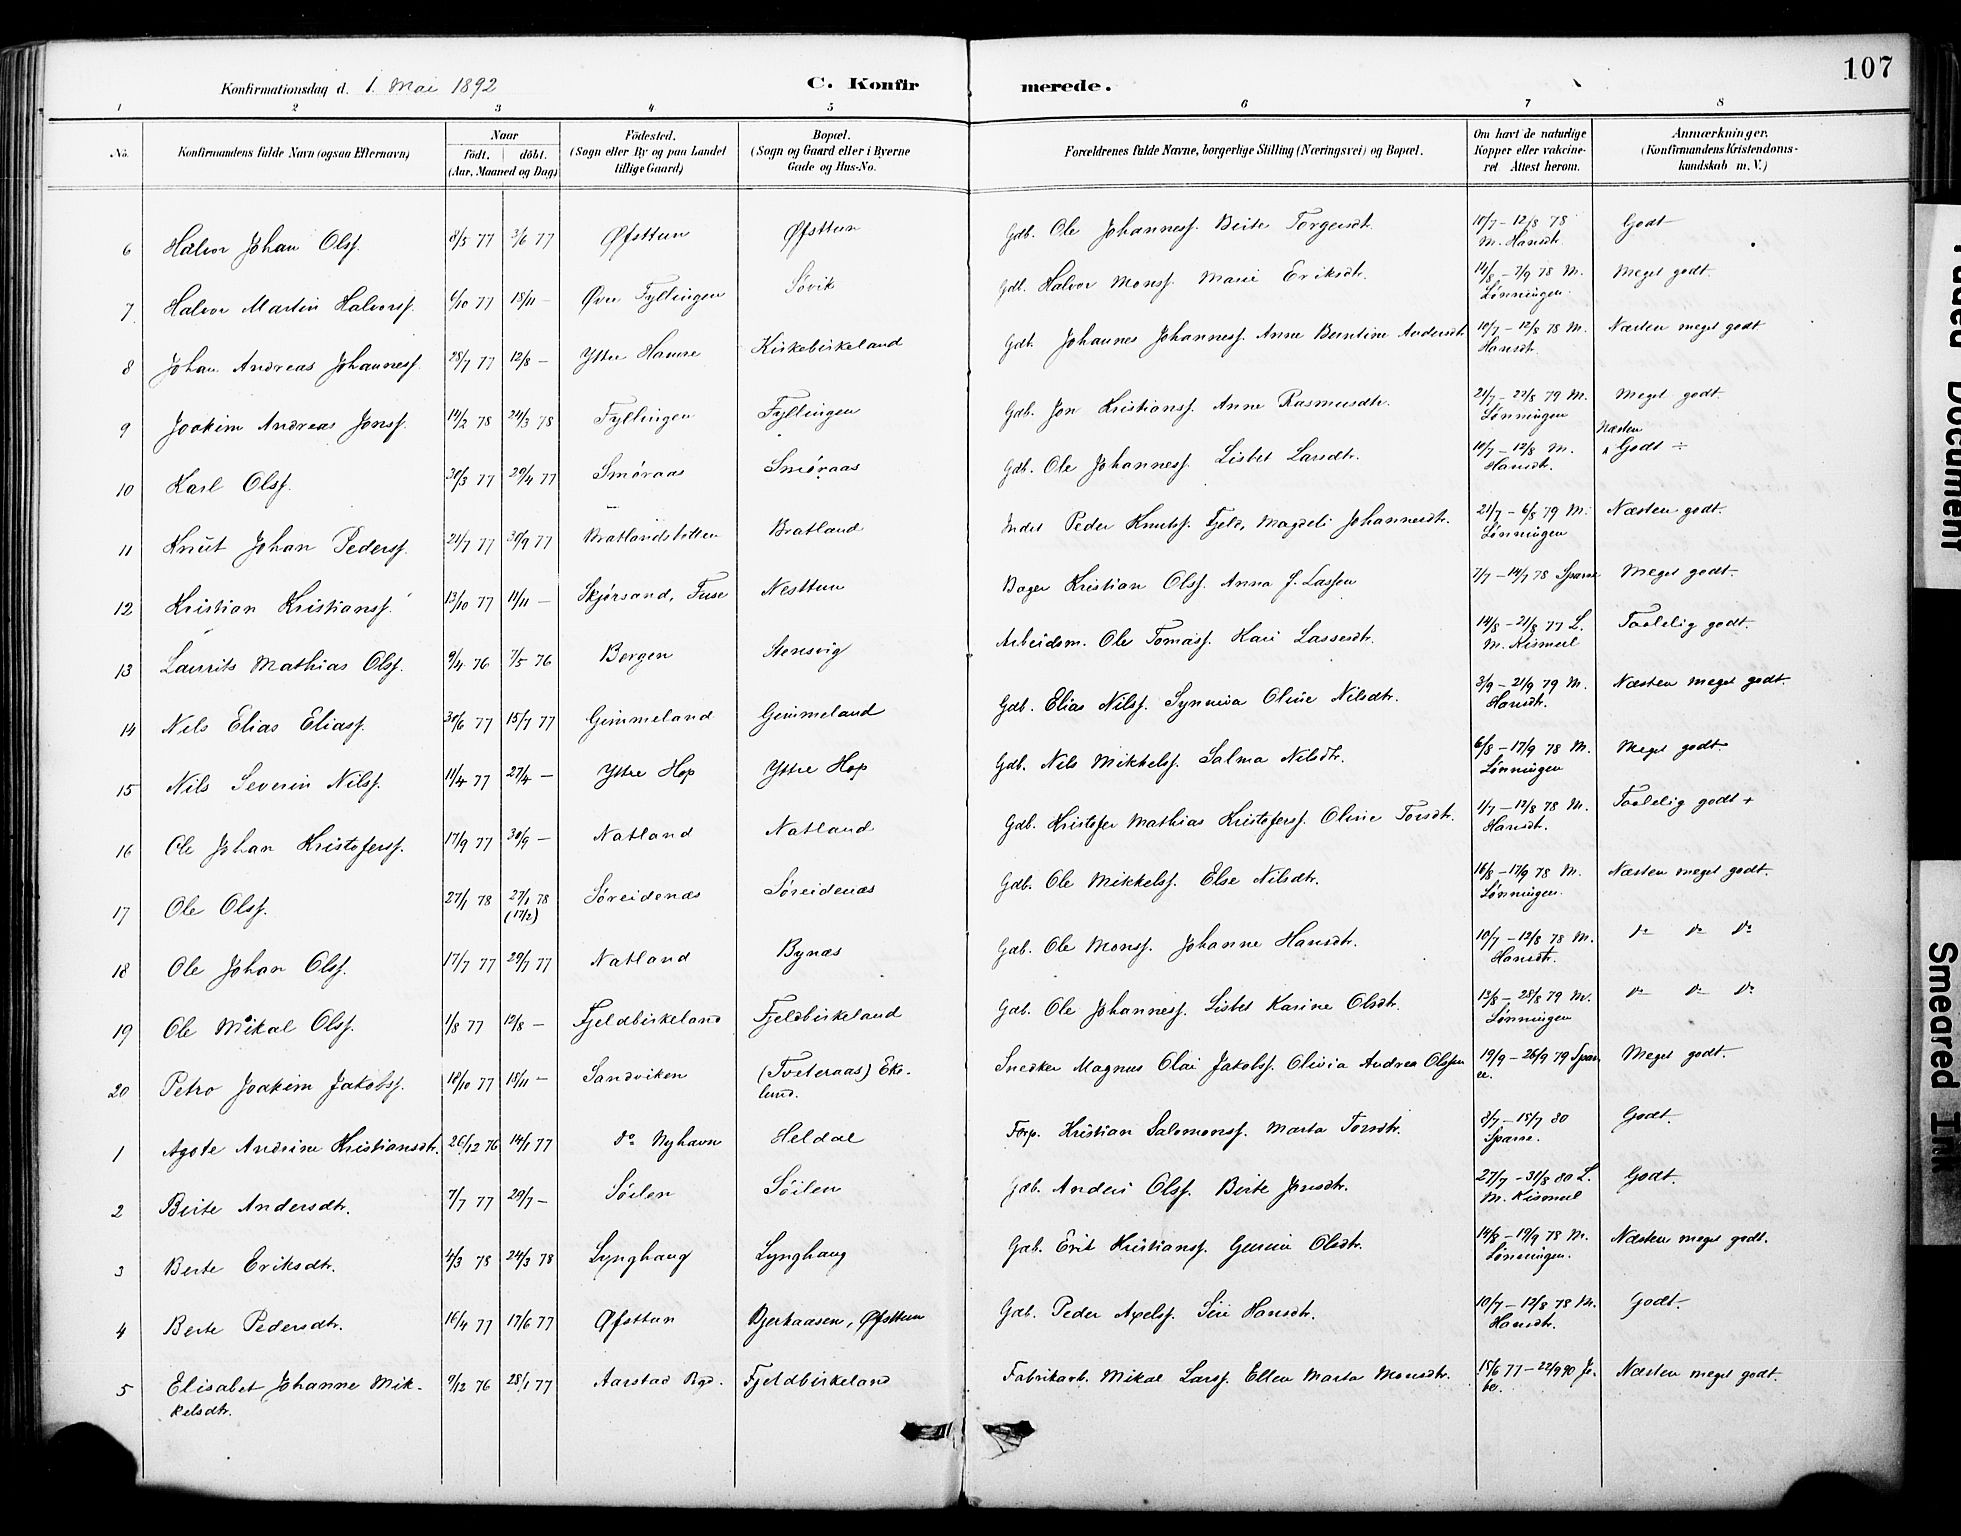 107
Konfirmationsdag d. 1. Mai 1892 C. Konfir merede.
1 2 3 4 5 6 7 8
No. Konfirmandens fulde Navn (ogsaa Efternavn) Naar födt. döbt. (Aar, Maaned og Dag) Födested. (Sogn eller By og paa Landet tillige Gaard) Bopæl. (Sogn og Gaard eller i Byerne Gade og Hus-No. Forældrenes fulde Navne, borgerlige Stilling (Næringsvei) og Bopæl. Om havt de naturlige Kopper eller vakcineret. Attest herom. Anmærkninger. (Konfirmandens Kristendomskundskab m. V.)
6 Halvor Johan Olsf. 8/5 77 3/6 77 Øfsttun Øfsttun Gdb. Ole Johannesf. Berte Torgersdt. 10/7 – 12/8 78 M. Hansdt. Godt
7 Halvor Martin Halvorsf. 6/10 77 18/11 – Øvre Fyllingen Søvik Gdb. Halvor Monsf. Marie Eriksdtr. 14/8 – 7/9 78 M. Lønningen. Meget godt.
8 Johan Andreas Johannesf. 28/7 77 12/8 – Ytre Hamre Kirkebirkeland Gdb. Johannes Johannesf. Anne Berntine Andersdt. 10/7 – 12/8 78 M. Hansdt. Næsten meget godt
9 Joakim Andreas Jonsf. 14/2 78 24/3 78 Fyllingen Fyllingen Gdb. Jon Kristiansf. Anne Rasmusdtr. 21/7 – 22/8 79 M. Lønningen Meget godt.
10 Karl Olsf. 30/3 77 29/4 77 Smøraas Smøraas Gdb. Ole Johannesf. Lisbet Larsdtr. 10/7 – 12/8 M. Hansdt. Næsten Godt ÷
11 Knut Johan Pedersf. 21/7 77 30/9 77 Bratlandslotten Bratland Inds Peder Knutsf. Fjeld, Magdeli Johannesdtr. 21/7 – 6/8 79 M. Lønningen Næsten godt.
12 Kristian Kristiansf. 13/10 77 11/11 – Skjørsand, Fuse Nesttun Bager Kristian Olsf. Anna J. Lassen 7/7 – 14/7 78 Sparre Meget godt.
13 Laurits Mathias Olsf. 9/4 76 7/5 76 Bergen Stensvig Arbeidsm. Ole Tomasf. Kari Lassesdtr. 14/8 – 21/8 77 L. M. Rismul Taalelig godt.
14 Nils Elias Eliasf. 30/6 77 15/7 77 Gimmeland Gimmeland Gdb. Elias Nilsf. Synneva Oline Nilsdtr. 3/9 – 21/9 79 M. Hansdt. Næsten meget godt.
15 Nils Severin Nilsf. 11/4 77 27/4 – Ytre Hop Ytre Hop Gdb. Nils Mikkelsf. Salma Nilsdtr. 6/8 – 17/9 78 M. Lønningen Meget godt
16 Ole Johan Kristofersf. 17/9 77 30/9 – Natland Natland Gdb. Kristofer Mathias Kristofersf. Oline Torsdt. 1/7 – 12/8 78 M. Hansdt. Taalelig godt +
17 Ole Olsf. 27/1 78 27/1 78 (17/2) Søreidenæs Søreidenæs Gdb. Ole Mikkelsf. Else Nilsdtr. 16/8 – 17/9 78 M. Lønningen. Næsten meget godt.
18 Ole Johan Olsf. 17/7 77 29/7 77 Natland Bynæs Gdb. Ole Monsf. Johanne Hansdtr. 10/7 – 12/8 78 M. Hansdt. do do do
19 Ole Mikal Olsf. 1/8 77 12/8 – Fjeldbirkeland Fjeldbirkeland Gdb. Ole Johannesf. Lisbet Karine Olsdtr. 12/8 – 28/8 79 M. Lønningen do do do
20 Petro Joakim Jakobsf. 18/10 77 18/11 – Sandviken (Tveteraas) Ekelund. Snedker Magnus Olai Jakobsf. Olivia Andrea Olsen 19/9 – 26/9 79 Sparre. Meget godt.
1 Agote Andrine Kristiansdtr. 26/12 76 14/1 77 do Nyhavn Heldal Forp. Kristian Salomonsf. Marta Torsdtr. 8/7 – 15/7 80 Sparre. Godt.
2 Berte Andersdtr. 7/7 77 29/7 – Søilen Søilen Gdb. Anders Olsf. Berte Jonsdtr. 27/7 – 31/8 80 L. M. Rismul Godt.
3 Berte Eriksdtr. 4/3 78 24/3 78 Lynghaug Lynghaug Gdb. Erik Kristiansf. Gurine Olsdtr. 14/8 – 19/9 78 M. Lønningen. Næsten meget godt.
4 Berte Pedersdtr. 16/4 77 17/6 77 Øfsttun Bjerkaasen, Øfsttun Gdb. Peder Axelsf. Siri Hansdtr. 10/7 – 12/8 78 M. Hansdt. Godt.
5 Elisabet Johanne Mikkelsdtr. 9/12 76 28/1 77 Aarstad Bgd. Fjeldbirkeland Fabrikarb. Mikal Larsf. Ellen Marta Monsdtr. 15/6 77 – 22/9 90 Næsten meget godt.
Faded Document
Smeared Ink